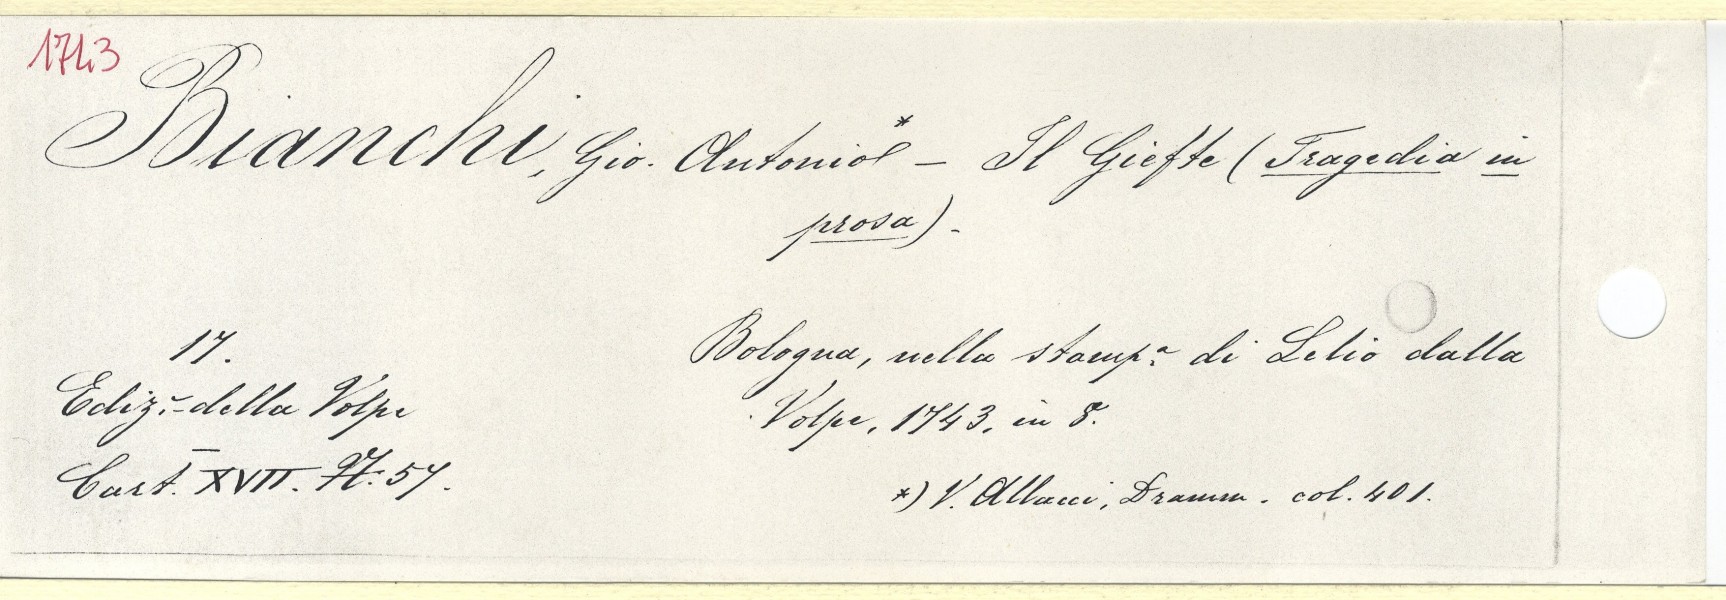 1743
Bianchi, Gio. Antonio* – Il Giefte (Tragedia in
prosa).-
17.
Ediz.e della Volpe
Cart. XVII. N. 57.
Bologna, nella stamp.a di Lelio dalla
Volpe, 1743, in 8.
*) V. Allacci, Dramm. col. 401.